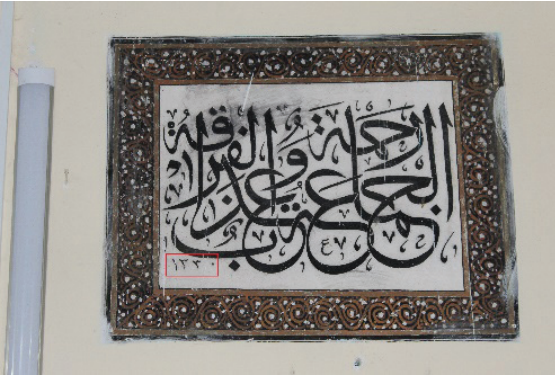 الجماعة رحمة والفرقة عذاب
١٣٣٠